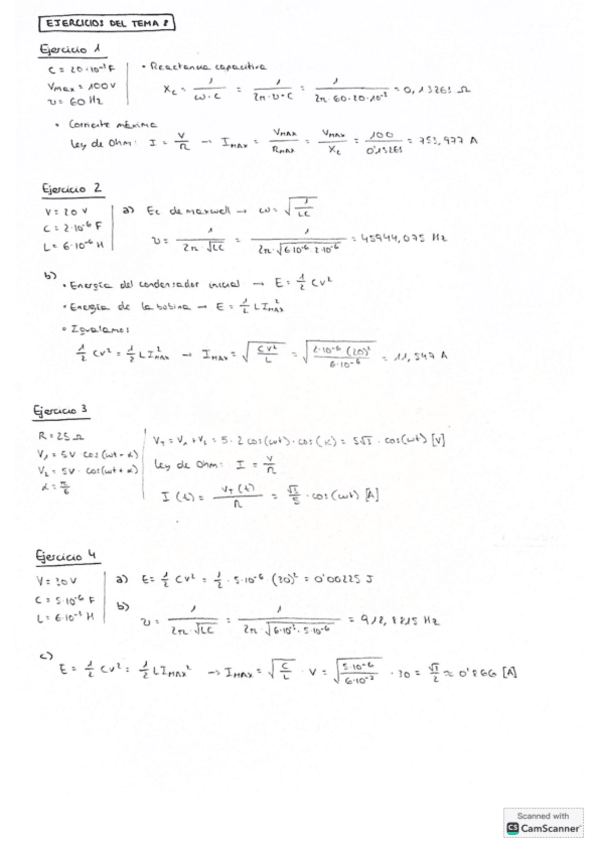 EJERCICIOS DEL TEMA 8
Ejercicio 1
C = 20·10⁻³ F
Vmax = 100V
ν = 60 Hz
• Reactancia capacitiva
X_C = 1/(ω·C) = 1/(2π·ν·C) = 1/(2π·60·20·10⁻³) = 0,13263 Ω
• Corriente máxima
Ley de Ohm: I = V/R → I_MAX = V_MAX/R_MAX = V_MAX/X_C = 100/0'13263 = 753,977 A
Ejercicio 2
V = 20 V
C = 2·10⁻⁶ F
L = 6·10⁻⁶ H
a) Ec de maxwell → ω = √(1/LC)
ν = 1/(2π·√LC) = 1/(2π·√(6·10⁻⁶·2·10⁻⁶)) = 45944,075 Hz
b)
• Energía del condensador inicial → E = 1/2 CV²
• Energía de la bobina → E = 1/2 L I_MAX²
• Igualamos
1/2 CV² = 1/2 L I_MAX² → I_MAX = √(CV²/L) = √(2·10⁻⁶·(20)²/6·10⁻⁶) = 11,547 A
Ejercicio 3
R = 25 Ω
V₁ = 5V·cos(ωt - α)
V₂ = 5V·cos(ωt + α)
α = π/6
V_T = V₁ + V₂ = 5·2 cos(ωt)·cos(α) = 5√3·cos(ωt) [V]
Ley de Ohm: I = V/R
I(t) = V_T(t)/R = √3/5·cos(ωt) [A]
Ejercicio 4
V = 30V
C = 5·10⁻⁶ F
L = 6·10⁻³ H
a) E = 1/2 CV² = 1/2·5·10⁻⁶ (30)² = 0'00225 J
b)
ν = 1/(2π·√LC) = 1/(2π·√(6·10⁻³·5·10⁻⁶)) = 918,8815 Hz
c)
E = 1/2 CV² = 1/2 L I_MAX² → I_MAX = √(C/L)·V = √(5·10⁻⁶/6·10⁻³)·30 = √3/2 ≈ 0'866 [A]
Scanned with
CS CamScanner